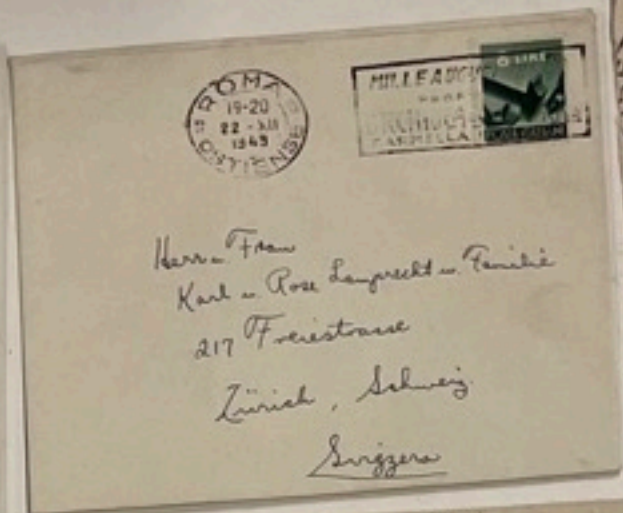 ROMA
19-20
22 - XII
1949
OSTIENSE
MILLE AUGU
PER
CARMELLA
6 LIRE
Herr u. Frau
Karl u. Rose Lamprecht u. Familie
217 Freiestrasse
Zürich, Schweiz
Svizzera